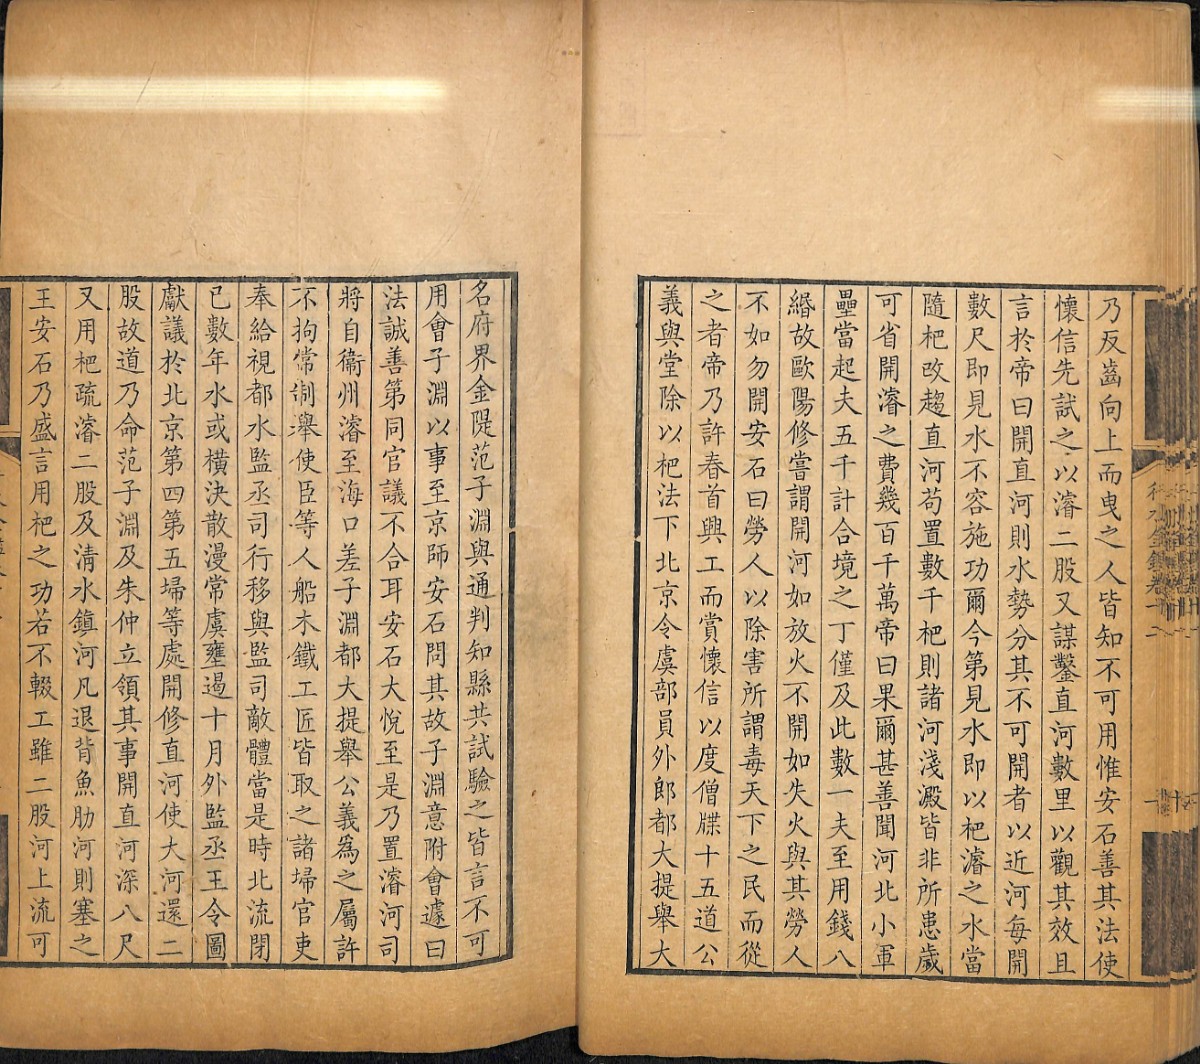 乃反齒向上而曳之人皆知不可用惟安石善其法使
懷信先試之以濬二股又謀鑿直河數里以觀其效且
言於帝曰開直河則水勢分其不可開者以近河每開
數尺即見水不容施功爾今第見水即以杷濬之水當
隨杷改趨直河苟置數千杷則諸河淺澱皆非所患歲
可省開濬之費幾百千萬帝曰果爾甚善聞河北小軍
壘當起夫五千計合境之丁僅及此數一夫至用錢八
緡故歐陽修嘗謂開河如放火不開如失火與其勞人
不如勿開安石曰勞人以除害所謂毒天下之民而從
之者帝乃許春首興工而賞懷信以度僧牒十五道公
義與堂除以杷法下北京令虞部員外郎都大提舉大
名府界金隄范子淵與通判知縣共試驗之皆言不可
用會子淵以事至京師安石問其故子淵意附會遽曰
法誠善第同官議不合耳安石大悅至是乃置濬河司
將自衞州濬至海口差子淵都大提舉公義為之屬許
不拘常制舉使臣等人船木鐵工匠皆取之諸埽官吏
奉給視都水監丞司行移與監司敵體當是時北流閉
已數年水或橫決散漫常虞壅遏十月外監丞王令圖
獻議於北京第四第五埽等處開修直河使大河還二
股故道乃命范子淵及朱仲立領其事開直河深八尺
又用杷疏濬二股及清水鎮河凡退背魚肋河則塞之
王安石乃盛言用杷之功若不輟工雖二股河上流可
行水金鑑卷十二